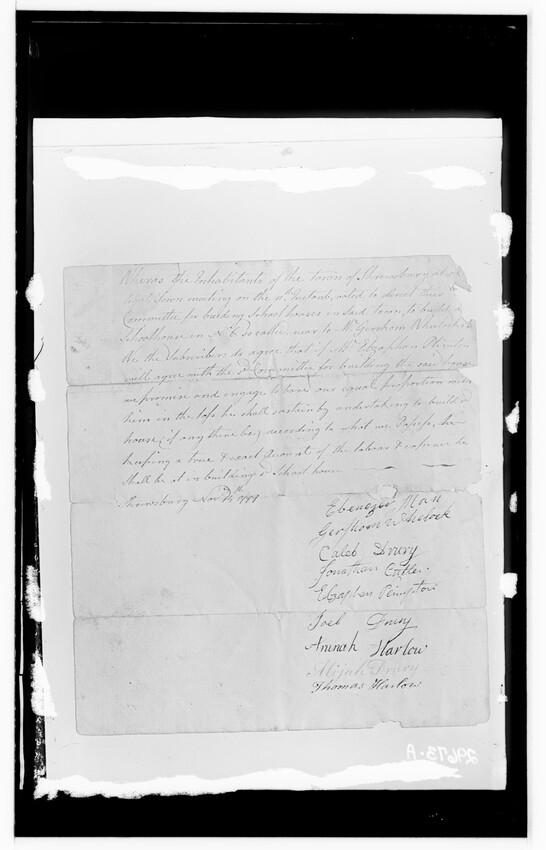 Whereas the Inhabitants of the town of Shrewsbury at a
Town meeting on the 11th Instant, voted to direct their
Committee for building School houses in said town, to build a
Schoolhouse in N. E. so called, near to Mr. Gershom Wheelock's
We the Subscribers do agree that if Mr. Elzaphan
will agree with the sd. Committee for building the said house
we promise and engage to have our equal proportion with
him in the loss he shall sustain by undertaking to build sd.
house, (if any there be) according to what we Possess, he
keeping a true & exact account of the labour & expence he
shall be at in building sd. School house
Shrewsbury Nov.
Ebenezer Man
Gershom Wheelock
Caleb Drury
Jonathan Cutler
Elzaphan
Joel Drury
Arunah Harlow
Abijah Drury
Thomas Harlow
29673-A